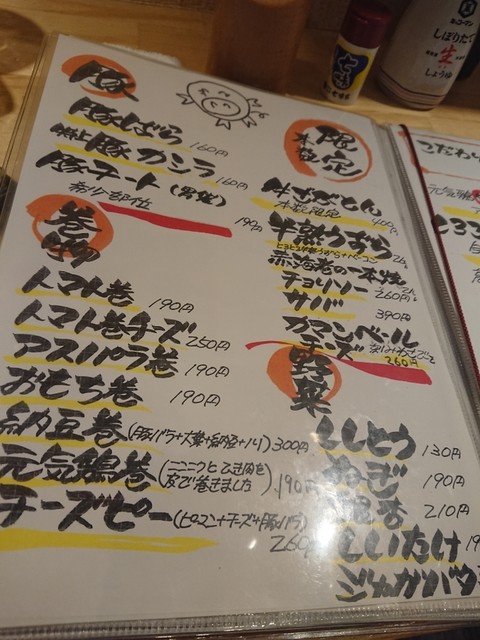 豚
豚ばら 160円
豚カシラ 160円
豚テート(男気)
希少部位 190円
巻物
トマト巻 190円
トマト巻チーズ 250円
アスパラ巻 190円
おもち巻 190円
納豆巻 300円
元気鶏巻(ニンニクとひき肉を皮で巻きました) 190円
チーズピー(ピーマン+チーズ+豚バラ) 260円
限定
本数
本数限定
半熟うずら
赤海老の一本焼
チョリソー 260円
サバ 390円
カマンベールチーズ 260円
野菜
ししとう 130円
ねぎ 190円
210円
しいたけ
キッコーマン
しぼりたて
生
しょうゆ
こだわり